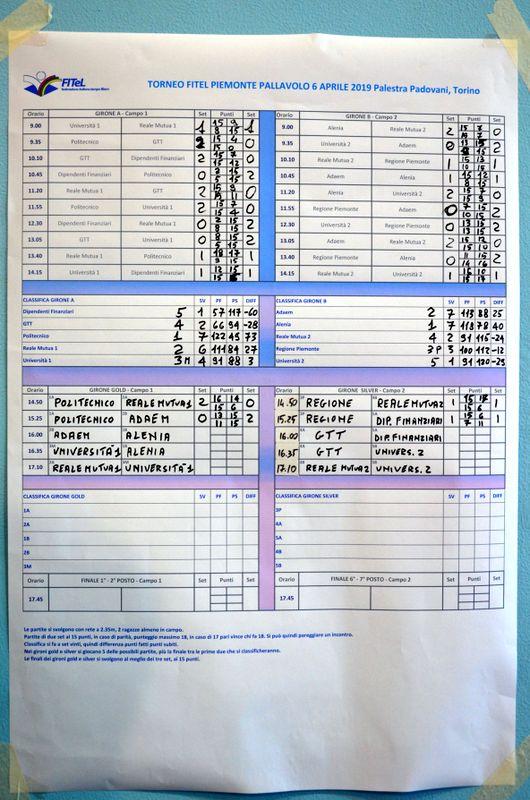 FITeL
TORNEO FITEL PIEMONTE PALLAVOLO 6 APRILE 2019 Palestra Padovani, Torino
Orario GIRONE A - Campo 1 Set Punti Set
9.00 Università 1 Reale Mutua 1 1 15 9 8 15 1
9.35 Politecnico GTT 2 15 4 15 0 0
10.10 GTT Dipendenti Finanziari 2 0
10.45 Dipendenti Finanziari Politecnico 0 2
11.20 Reale Mutua 1 GTT 2 0
11.55 Politecnico Università 1 2 0
12.30 Dipendenti Finanziari Reale Mutua 1 0 2
13.05 GTT Università 1 0 2
13.40 Reale Mutua 1 Politecnico 1 1
14.15 Università 1 Dipendenti Finanziari 1 1
Orario GIRONE B - Campo 2 Set Punti Set
9.00 Alenia Reale Mutua 2 2 0
9.35 Università 2 Adaem 0 2
10.10 Reale Mutua 2 Regione Piemonte 1 1
10.45 Adaem Alenia 1 1
11.20 Alenia Università 2 2 0
11.55 Regione Piemonte Adaem 0 2
12.30 Università 2 Regione Piemonte 0 2
13.05 Adaem Reale Mutua 2 2 0
13.40 Regione Piemonte Alenia 0 2
14.15 Reale Mutua 2 Università 2 1 1
CLASSIFICA GIRONE A SV PF PS DIFF
Dipendenti Finanziari 5 1 57 117 -60
GTT 4 2 66 94 -28
Politecnico 1 7 122 49 73
Reale Mutua 1 2 6 111 84 27
Università 1 3M 4 91 88 3
CLASSIFICA GIRONE B SV PF PS DIFF
Adaem 2 7 113 88 25
Alenia 1 7 118 78 40
Reale Mutua 2 4 2 91 115 -24
Regione Piemonte 3P 3 100 112 -12
Università 2 5 1 91 120 -29
Orario GIRONE GOLD - Campo 1 Set Punti Set
14.50 POLITECNICO REALE MUTUA 1 2 16 14 15 6 0
15.25 POLITECNICO ADAEM 0 13 15 11 15 2
16.00 ADAEM ALENIA
16.35 UNIVERSITÀ 1 ALENIA
17.10 REALE MUTUA 1 UNIVERSITÀ 1
Orario GIRONE SILVER - Campo 2 Set Punti Set
14.50 REGIONE REALE MUTUA 2 1 1
15.25 REGIONE DIP. FINANZIARI 1 15 6 7 11 1
16.00 GTT DIP. FINANZIARI
16.35 GTT UNIVERS. 2
17.10 REALE MUTUA 2 UNIVERS. 2
CLASSIFICA GIRONE GOLD SV PF PS DIFF
1A
2A
1B
2B
3M
CLASSIFICA GIRONE SILVER SV PF PS DIFF
3P
4A
5A
4B
5B
Orario FINALE 1° - 2° POSTO - Campo 1 Set Punti Set
17.45
Orario FINALE 6° - 7° POSTO - Campo 2 Set Punti Set
17.45
Le partite si svolgono con rete a 2.35m, 2 ragazze almeno in campo.
Partite di due set ai 15 punti, in caso di parità, punteggio massimo 18, in caso di 17 pari vince chi fa 18. Si può quindi pareggiare un incontro.
Classifica si fa a set vinti, quindi differenza punti fatti punti subiti.
Nei gironi gold e silver si giocano 5 delle possibili partite, più la finale tra le prime due che si classificheranno.
Le finali dei gironi gold e silver si svolgono al meglio dei tre set, ai 15 punti.